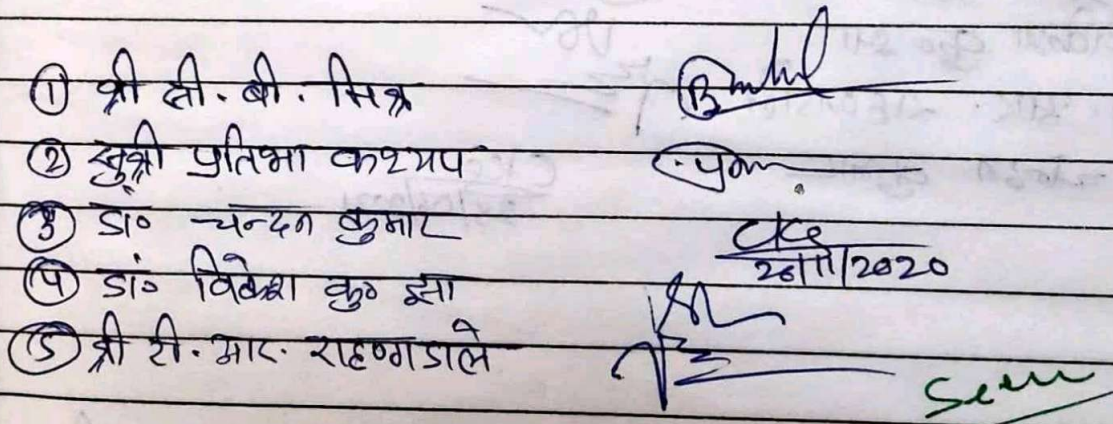 ① श्री सी. बी. मिश्र
② सुश्री प्रतिभा कश्यप
③ डॉ० चन्दन कुमार
④ डॉ० विकेश कु० झा
⑤ श्री टी. आर. राहणगडाले
CKe
26/11/2020
Seen